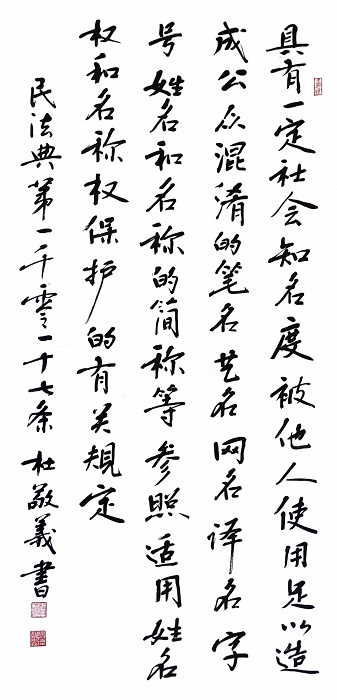 具有一定社会知名度被他人使用足以造
成公众混淆的笔名艺名网名译名字
号姓名和名称的简称等参照适用姓名
权和名称权保护的有关規定
民法典第一千零一十七条 杜敬義書